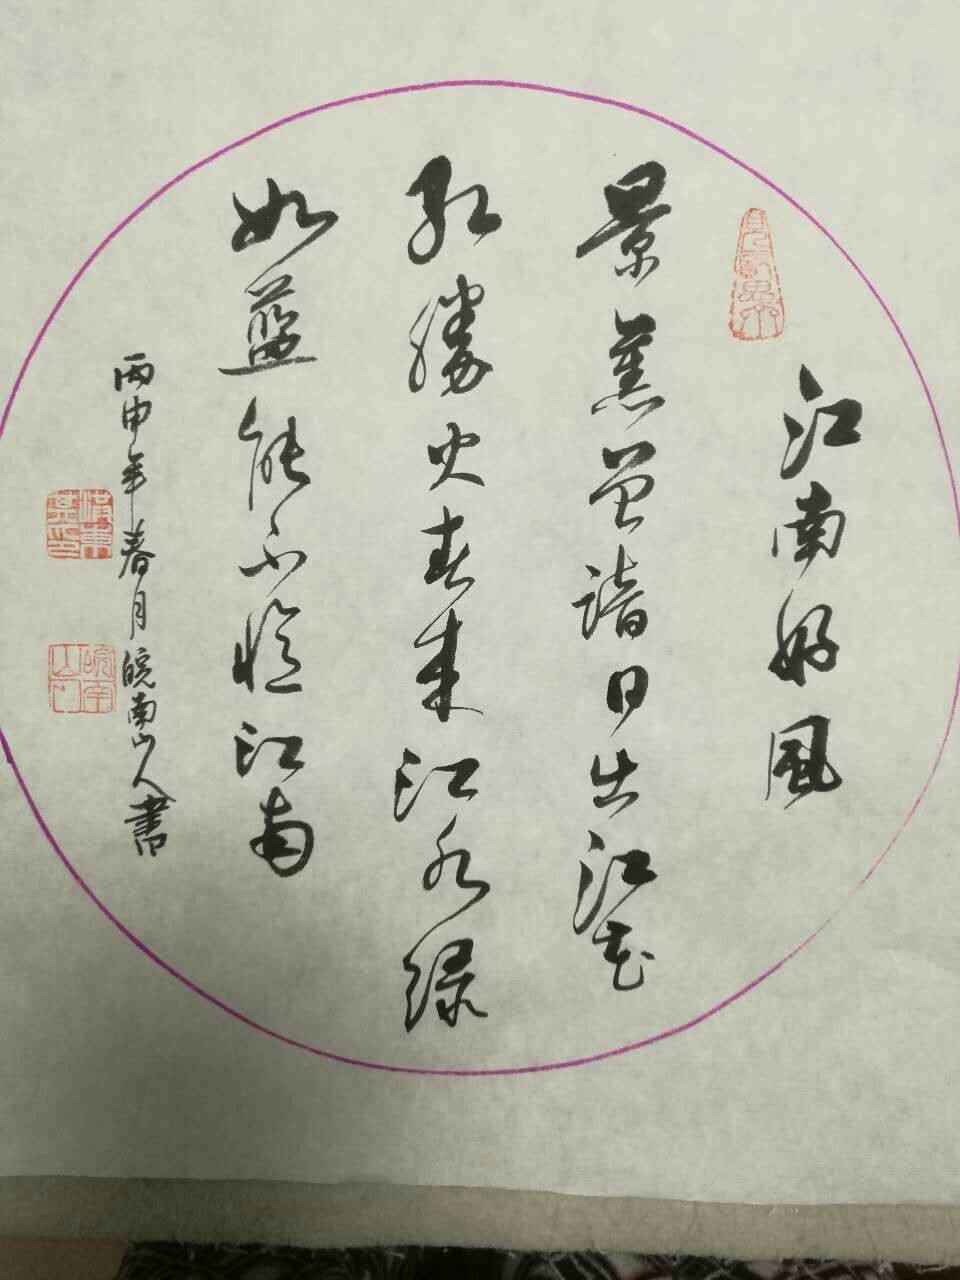 江南好風
景舊曾諳日出江花
紅勝火春來江水綠
如藍能不憶江南
丙申年春月皖南山人書
皖南山人